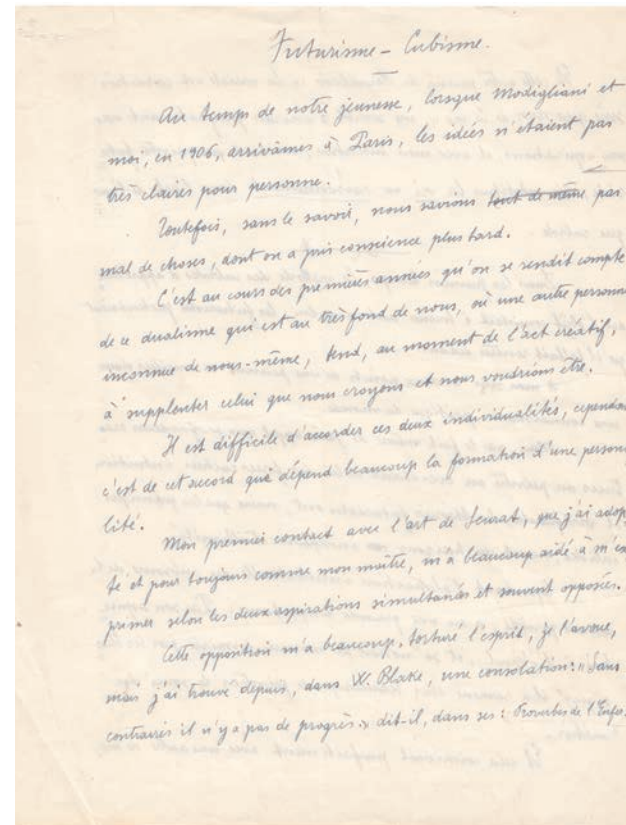 Futurisme – Cubisme.
Au temps de notre jeunesse, lorsque Modigliani et
moi, en 1906, arrivâmes à Paris, les idées n'étaient pas
très claires pour personne.
Toutefois, sans le savoir, nous savions tout de même pas
mal de choses, dont on a pris conscience plus tard.
C'est au cours des premières années qu'on se rendit compte
de ce dualisme qui est au très fond de nous, où une autre personne
inconnue de nous-même, tend, au moment de l'act créatif,
à supplenter celui que nous croyons et nous voudrions être.
Il est difficile d'accorder ces deux individualités, cependan
c'est de cet accord que dépend beaucoup la formation d'une person
lité.
Mon premier contact avec l'art de Seurat, que j'ai adop
té et pour toujours comme mon maître, m'a beaucoup aidé à m'ex
primer selon les deux aspirations simultanés et souvent opposées.
Cette opposition m'a beaucoup torturé l'esprit, je l'avoue,
mais j'ai trouvé depuis, dans W. Blake, une consolation: "Sans
contraires il n'y a pas de progrès." dit-il, dans ses: Proverbes de l'Enfer.